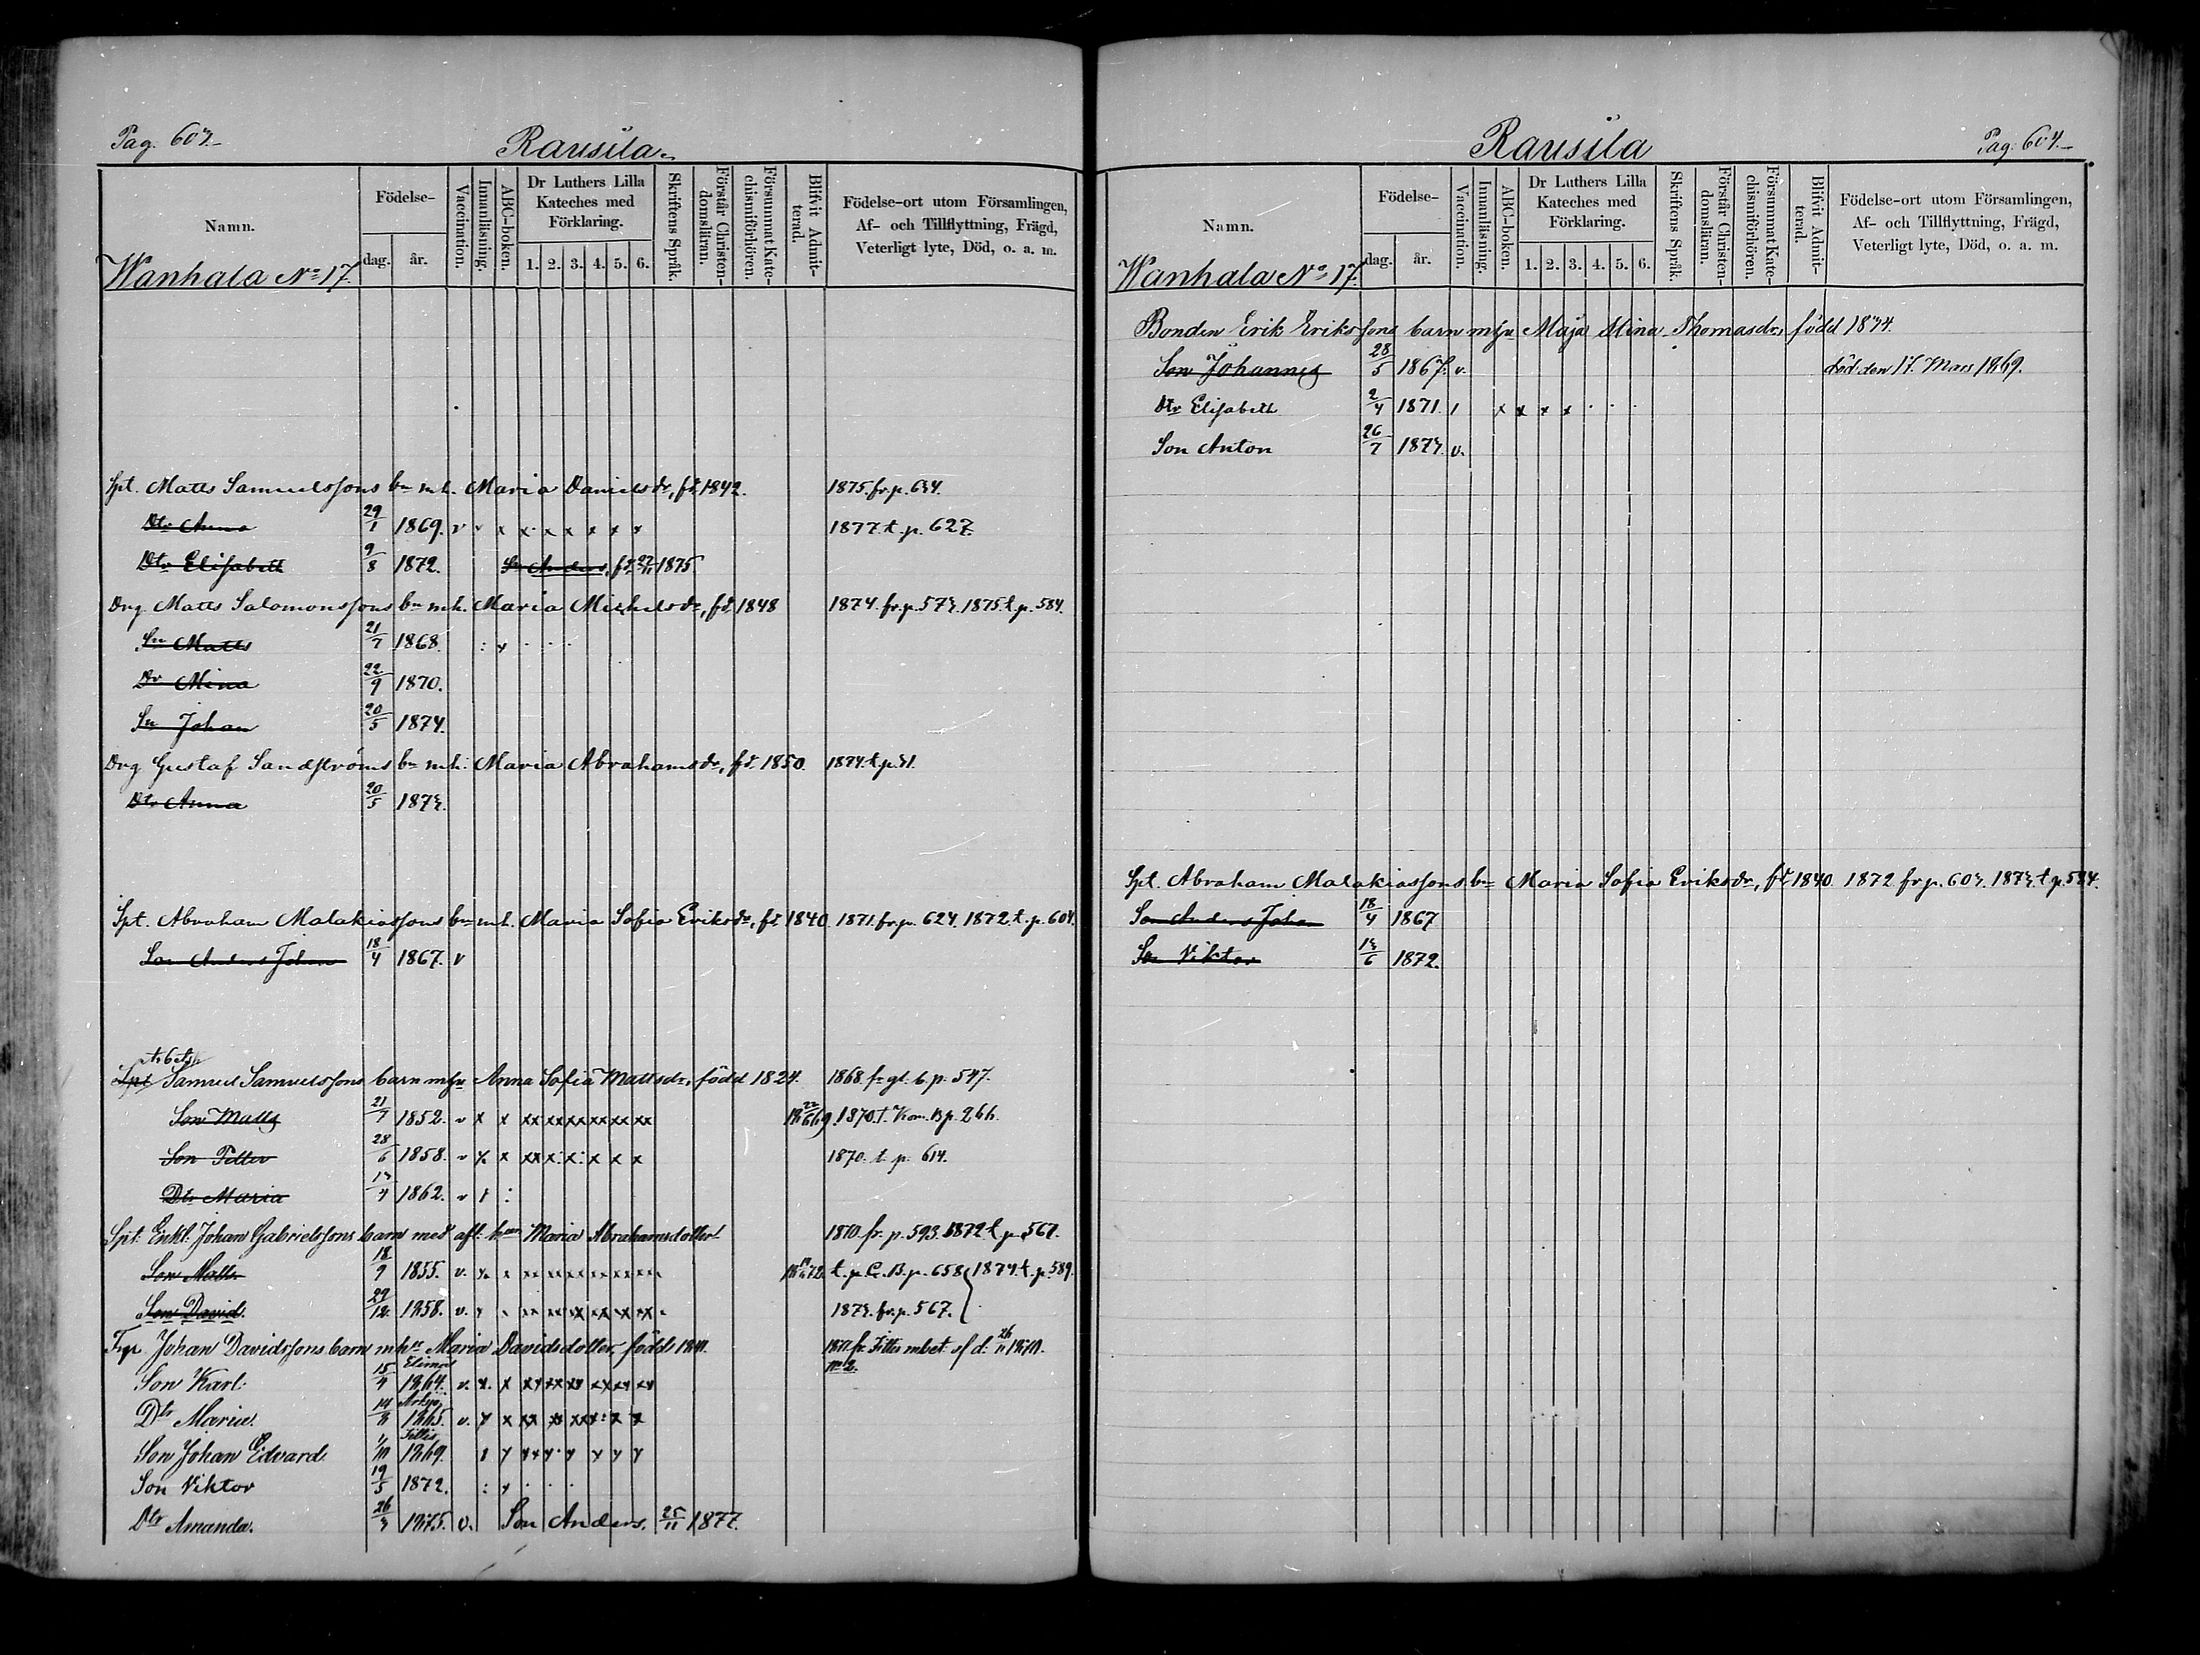 Pag. 603.
Rausila.
Namn.
Födelse-
dag.
år.
Vaccination.
Innanläsning.
ABC-boken.
Dr Luthers Lilla Kateches med Förklaring.
1. 2. 3. 4. 5. 6.
Skriftens Språk.
Förstår Christendomsläran.
Försummat Katechismiförhören.
Blifvit Admitterad.
Födelse-ort utom Församlingen,
Af- och Tillflyttning, Frägd,
Veterligt lyte, Död, o. a. m.
Wanhala No 17.
Spt. Matts Samuelssons bn m.h. Maria Danielsdr, fd. 1842. 1875. fr. p. 634.
Dtr Anna 29/1 1869. v v x x x x x x x 1877. t. p. 627.
Dtr Elisabeth 9/8 1872. Sn Anders, fd. 22/11 1875.
Drg Matts Salomonssons bn m.h. Maria Michelsdr, fd. 1848 1874. fr. p. 573. 1875. t. p. 584.
Sn Matts 21/7 1868.
Dr Mina 22/9 1870.
Sn Johan 20/5 1874.
Drg Gustaf Sandströms bn m.h. Maria Abrahamsdr, fd. 1850. 1874. t. p. 31.
Dtr Anna 20/5 1873.
Spt. Abraham Malakiassons bn m.h. Maria Sofia Eriksdr, fd. 1840. 1871. fr. p. 624. 1872. t. p. 604.
Son Anders Johan 18/4 1867. v
Arbets
Spt Samuel Samuelssons barn m hu Anna Sofia Mattsdr, född 1824. 1868. fr gl. b. p. 547.
Son Matts 21/7 1852. v x x xx xx xx xx xx xx 18 22/6 69. 1870. t. Kom. B p. 266.
Son Petter 28/6 1858. v x x xx x: x: x x x 1870. t. p. 614.
Dtr Maria 13/4 1862. v
Spt. Enkl. Johan Gabrielssons barn med afl. hun Maria Abrahamsdotter 1870. fr. p. 593. 1872 t. p. 567.
Son Matts 18/9 1855. v. x. x xx xx xx xx xx xx t. p. C. B. p. 658 1874. t. p. 589.
Son David. 29/12 1858. v. 1873. fr. p. 567.
Johan Davidssons barn m hu Maria Davidsdotter, född
Elimä
Son Karl. 15/4 1864. v. x. x xx xx xx xx xx xx
Dtr Maria. 14/8 1865. v.
Son Johan Edvard 1/10 1869.
Son Viktor 19/5 1872.
Dtr Amanda. 26/3 1875. v. Son Anders. 25/11 1877.
Rausila
Pag. 604.
Namn.
Födelse-
dag.
år.
Vaccination.
Innanläsning.
ABC-boken.
Dr Luthers Lilla Kateches med Förklaring.
1. 2. 3. 4. 5. 6.
Skriftens Språk.
Förstår Christendomsläran.
Försummat Katechismiförhören.
Blifvit Admitterad.
Födelse-ort utom Församlingen,
Af- och Tillflyttning, Frägd,
Veterligt lyte, Död, o. a. m.
Wanhala No 17.
Bonden Erik Erikssons barn m hu Maja Stina Thomasdr, född 1834.
Son Johannes 28/5 1867. v. död den 17. Mars 1869.
Dtr Elisabeth 2/4 1871. x x x x
Son Anton 26/7 1873. v.
Spt. Abraham Malakiassons bn Maria Sofia Eriksdr, fd. 1840. 1872 fr. p. 603. 1873. t. p. 584.
Son Anders Johan 18/4 1867
Son Viktor 13/6 1872.